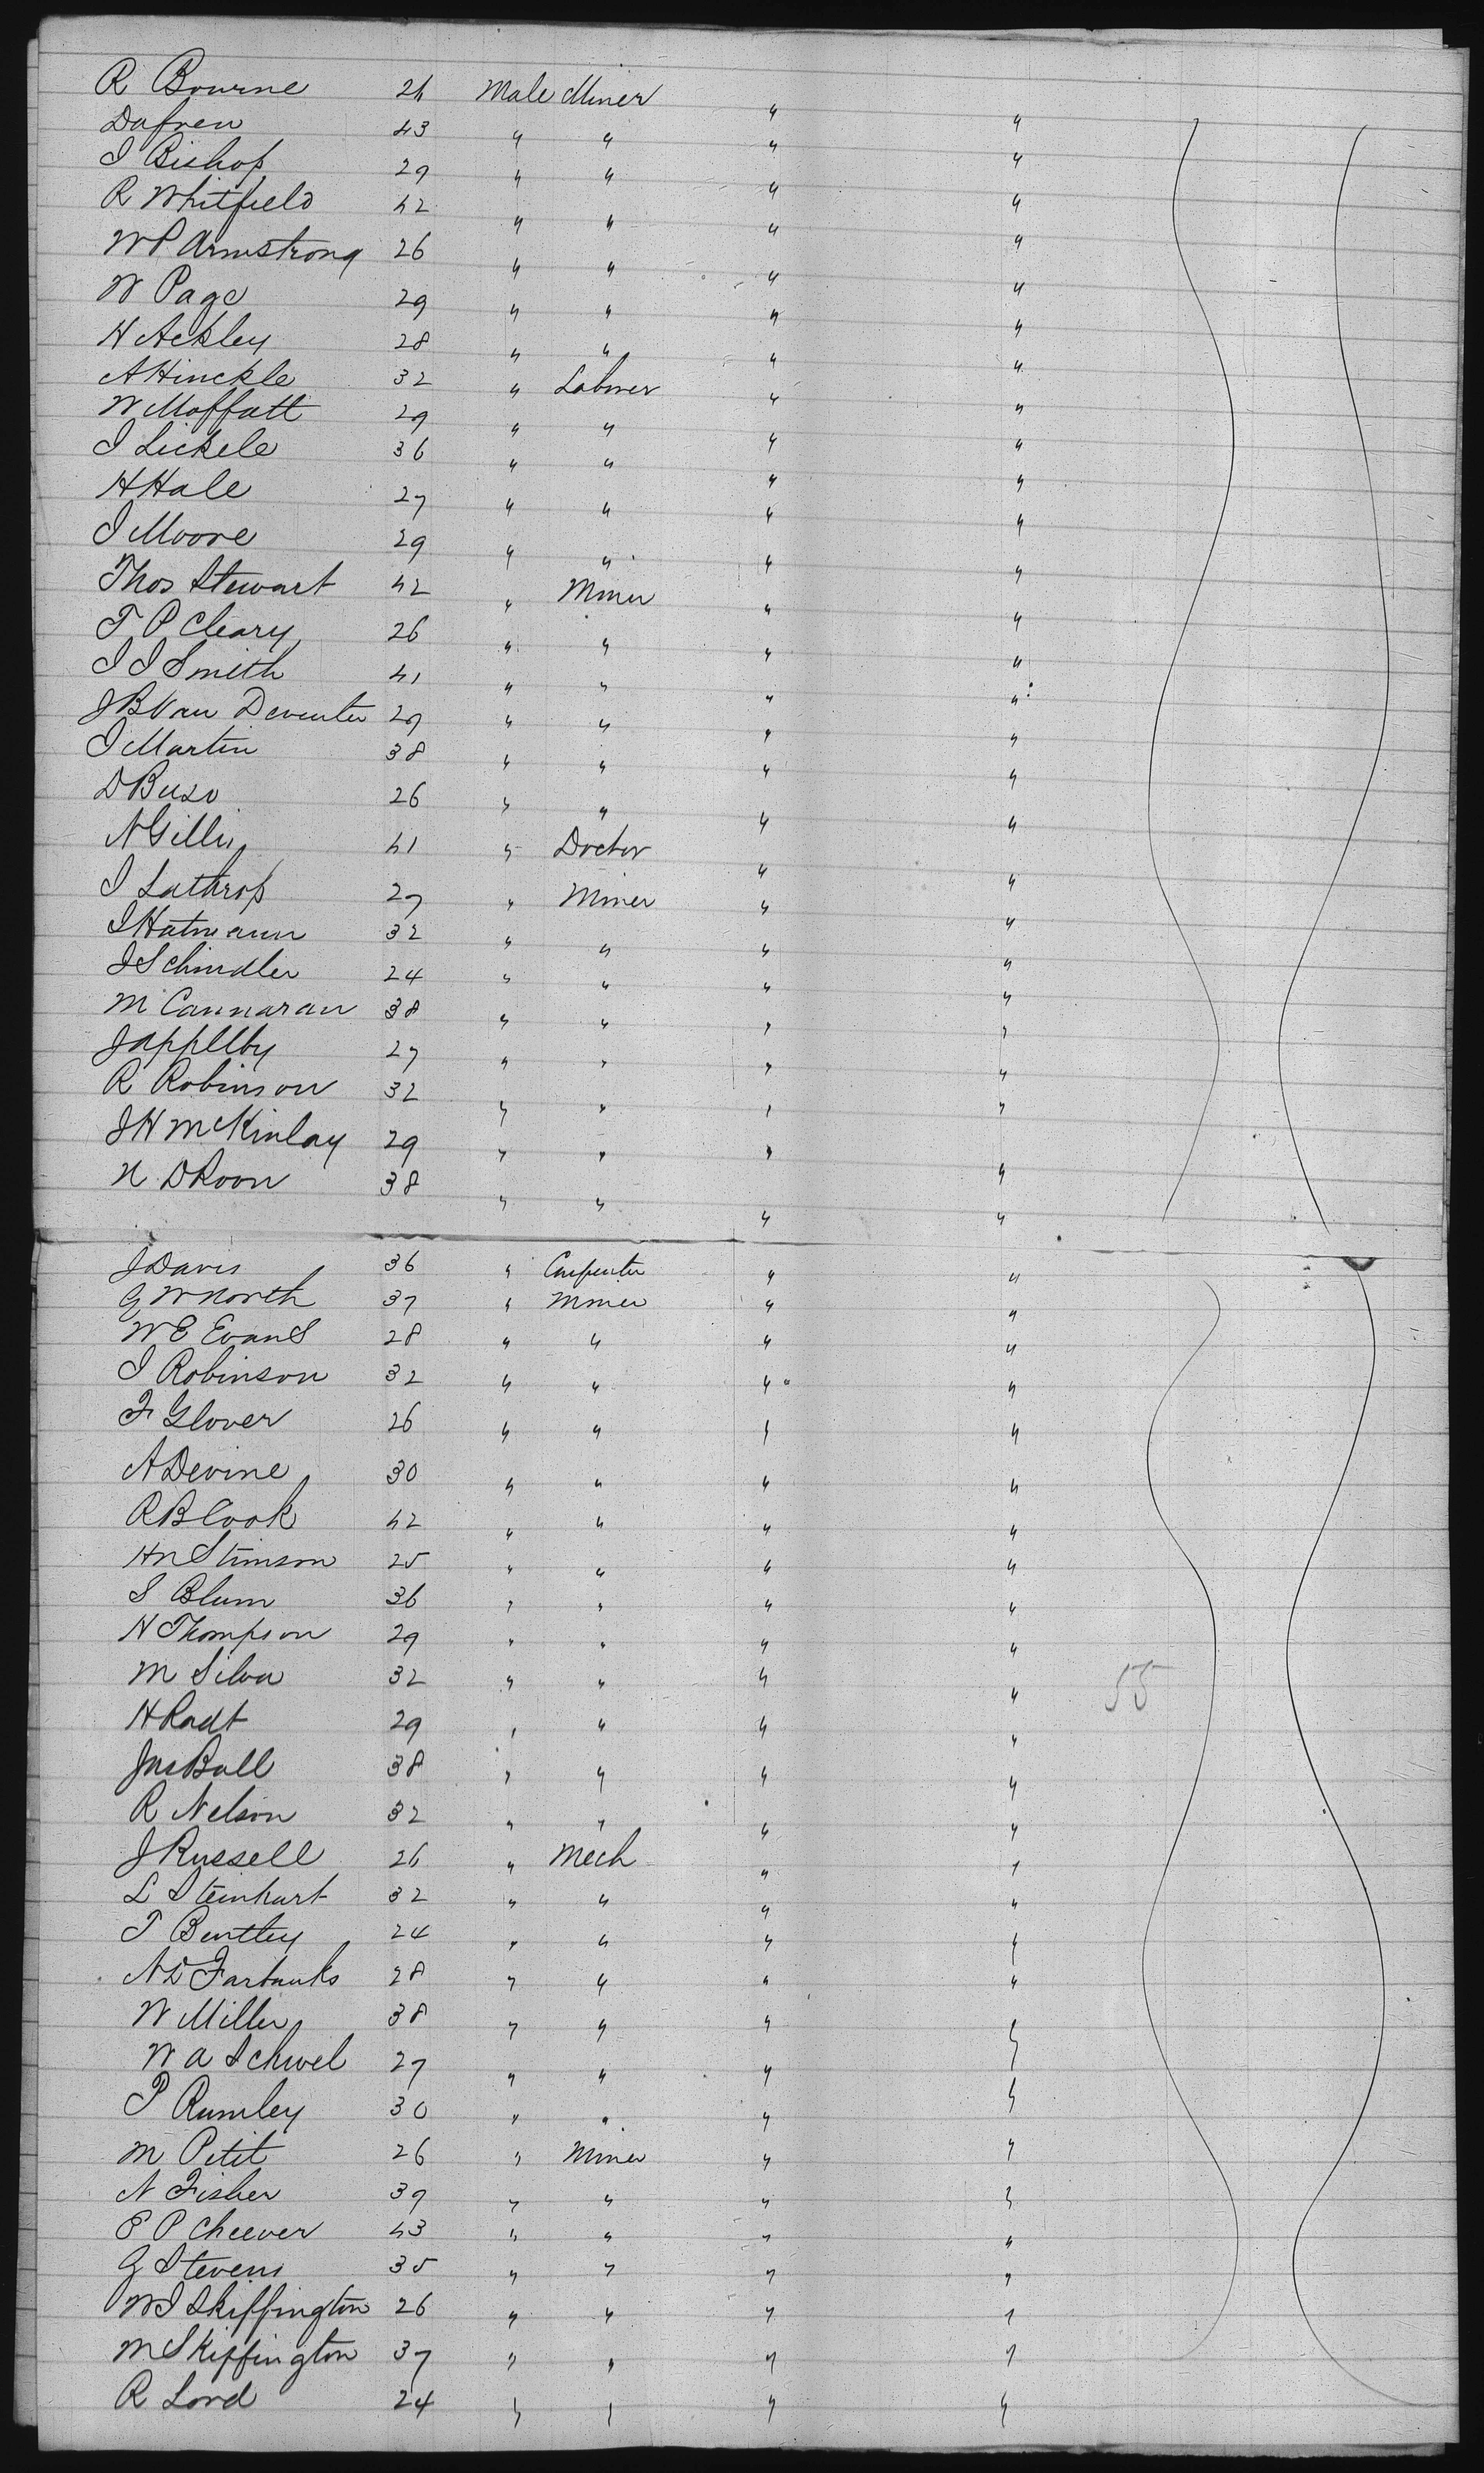 R Bourne 24 Male Miner " "
Dafren 43 " " " "
I Bishop 29 " " " "
R Whitfield 42 " " " "
W P Armstrong 26 " " " "
W Page 29 " " " "
H Ackley 28 " " " "
A Hinckle 32 " Laborer " "
W Moffatt 29 " " " "
I Lickele 36 " " " "
H Hale 27 " " " "
I Moore 29 " " " "
Thos Stewart 42 " Miner " "
T P Cleary 26 " " " "
I I Smith 41 " " " "
J B Van Deventer 29 " " " "
I Martin 38 " " " "
D Buzo 26 " " " "
N Gillis 41 " Doctor " "
I Lathrop 27 " Miner " "
I Hatmann 32 " " " "
J Schindler 24 " " " "
M Cannaran 38 " " " "
J Appllby 27 " " " "
R Robinson 32 " " " "
J H McKinlay 29 " " " "
N D Roon 38 " " " "
J Davis 36 " Carpenter " "
G W North 37 " Miner " "
W E Evans 28 " " " "
I Robinson 32 " " " "
F Glover 26 " " " "
A Devine 30 " " " "
R B Cook 42 " " " "
H N Stimson 25 " " " "
S Blum 36 " " " "
H Thompson 29 " " " "
M Silva 32 " " " " 55
H Radt 29 " " " "
Jas Ball 38 " " " "
R Nelson 32 " " " "
J Russell 26 " Mech " "
L Steinhart 32 " " " "
T Bentley 24 " " " "
N D Farbanks 28 " " " "
W Miller 38 " " " "
W A Schwel 27 " " " "
P Rumley 30 " " " "
M Petit 26 " Miner " "
N Fisher 39 " " " "
E P Cheever 43 " " " "
G Stevens 35 " " " "
W I Skiffington 26 " " " "
M Skiffington 37 " " " "
R Lord 24 " " " "